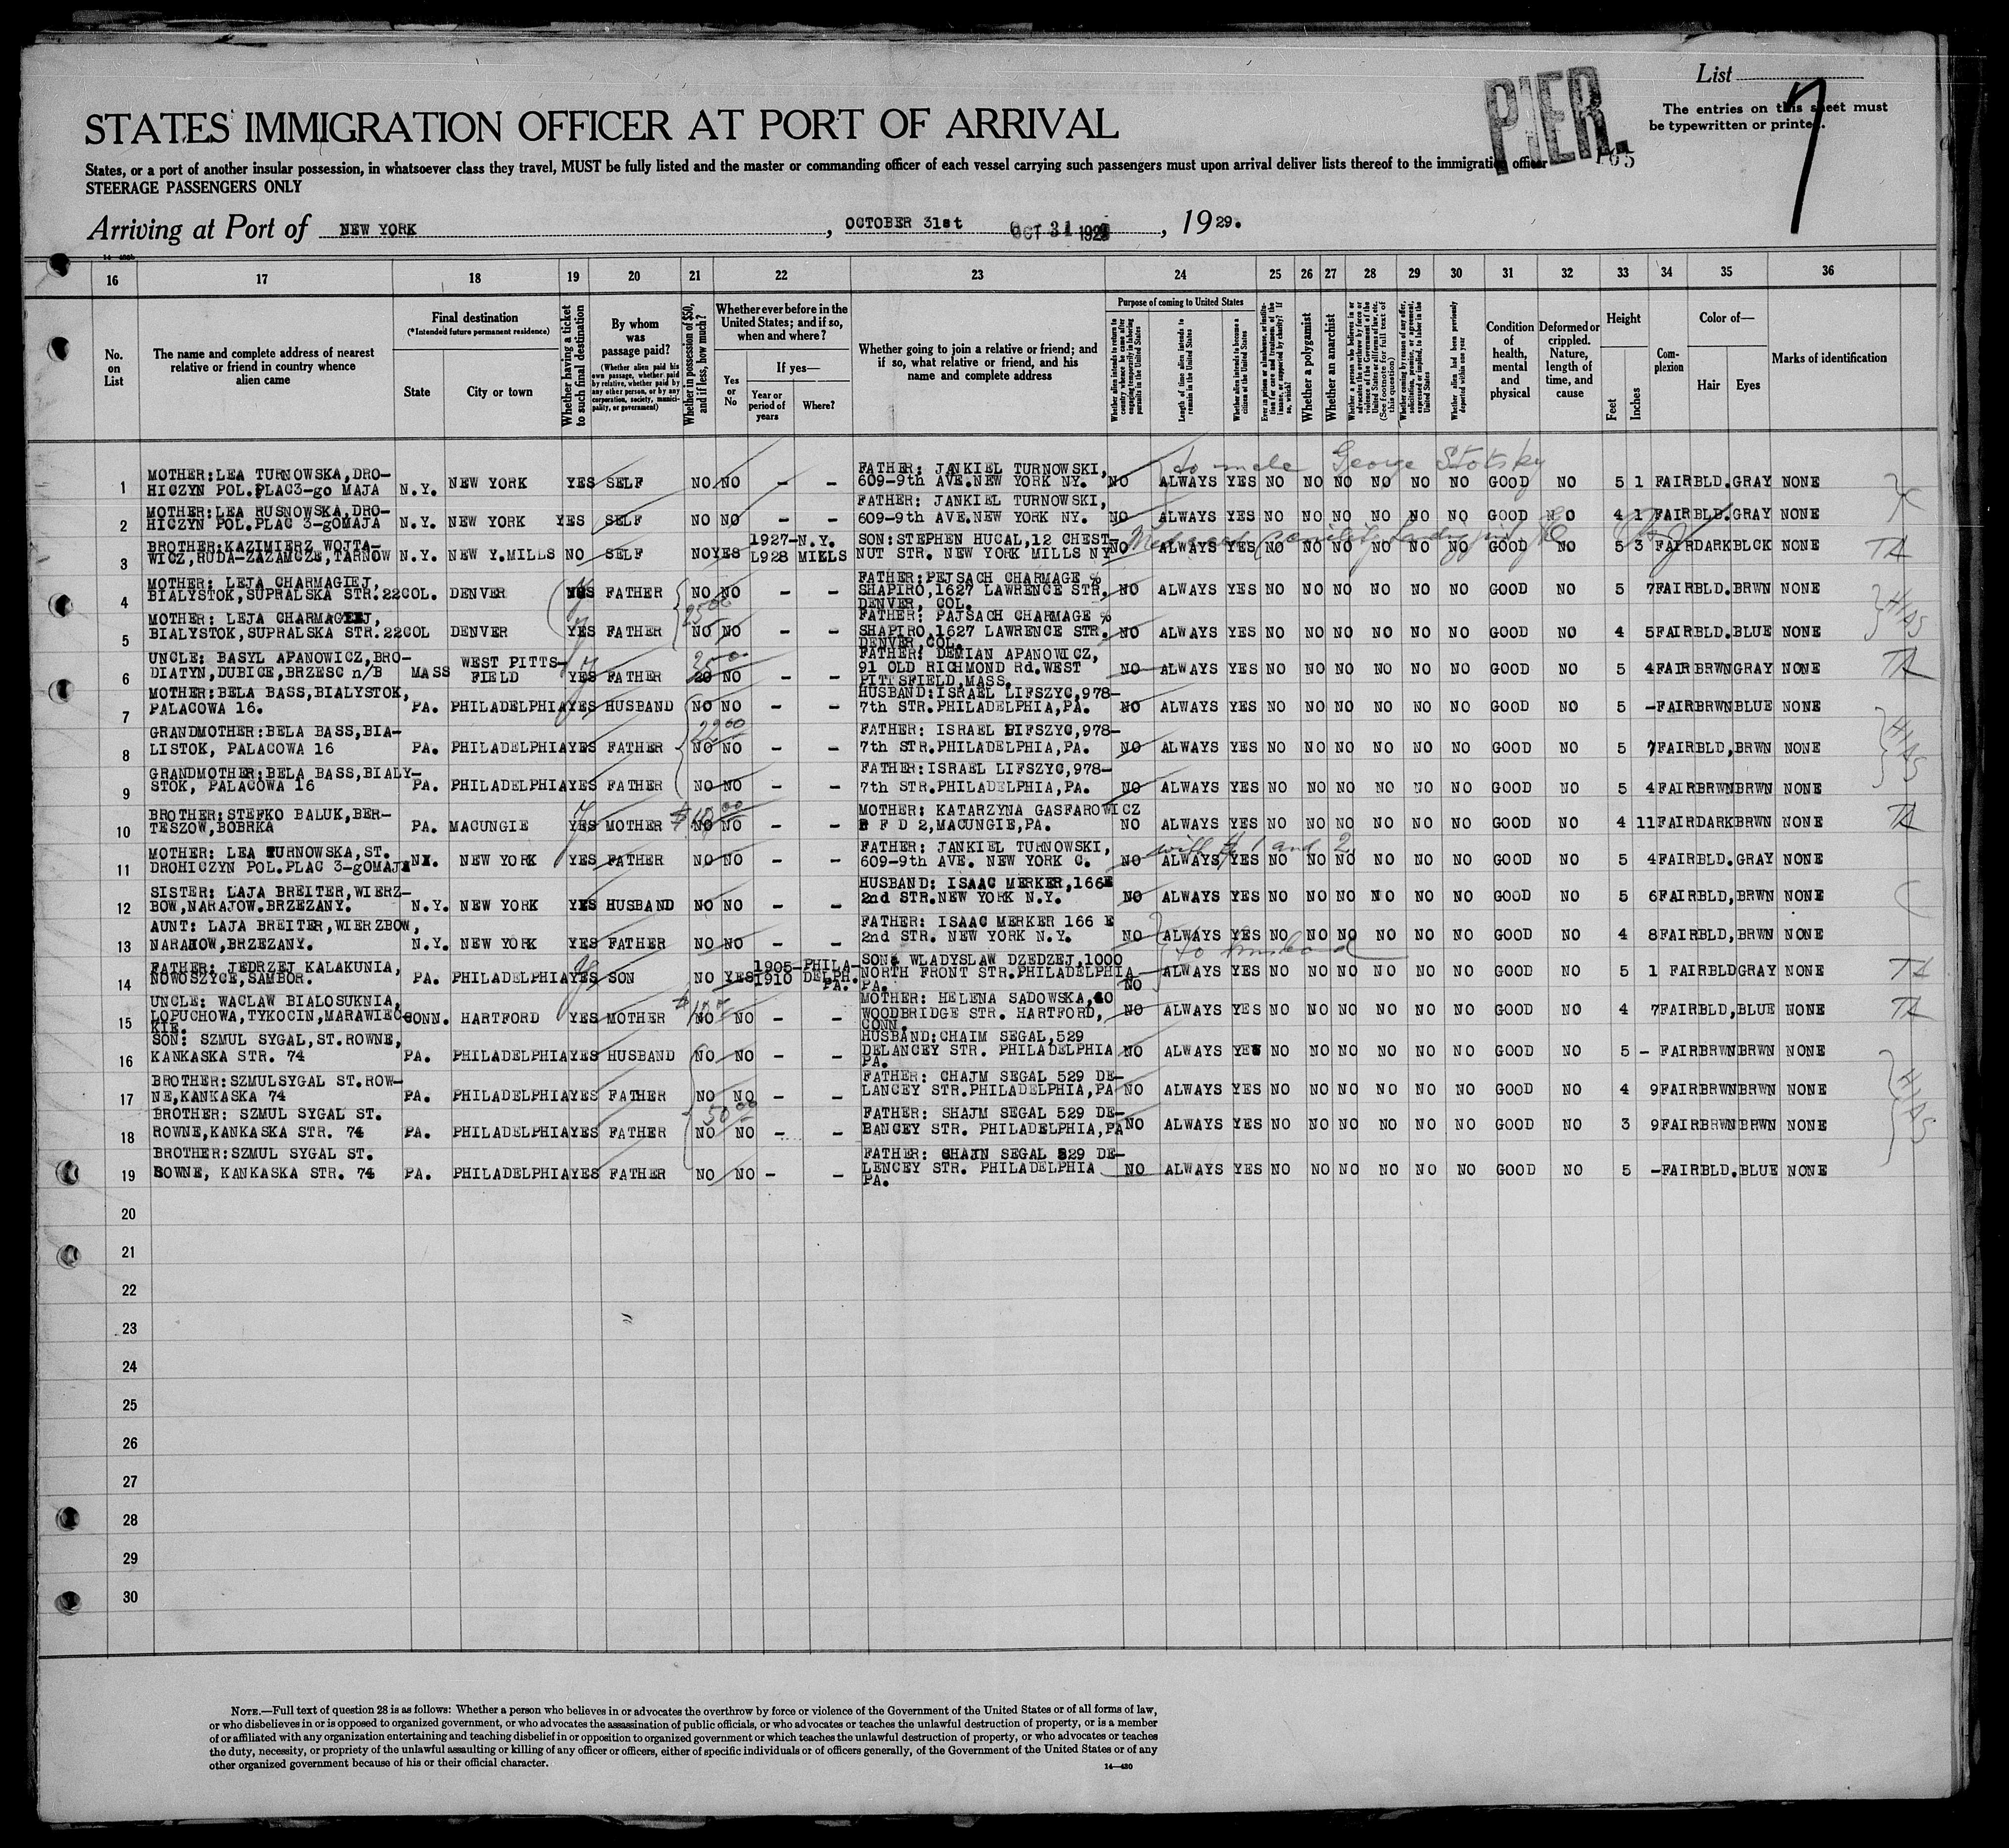 List
7
PIER.
The entries on this sheet must
be typewritten or printed.
STATES IMMIGRATION OFFICER AT PORT OF ARRIVAL
165
States, or a port of another insular possession, in whatsoever class they travel, MUST be fully listed and the master or commanding officer of each vessel carrying such passengers must upon arrival deliver lists thereof to the immigration officer
STEERAGE PASSENGERS ONLY
Arriving at Port of NEW YORK , OCTOBER 31st OCT 31 1929 , 19 29.
16 17 18 19 20 21 22 23 24 25 26 27 28 29 30 31 32 33 34 35 36
No. on List
The name and complete address of nearest relative or friend in country whence alien came
Final destination
(*Intended future permanent residence)
State
City or town
Whether having a ticket to such final destination
By whom was passage paid?
(Whether alien paid his own passage, whether paid by relative, whether paid by any other person, or by any corporation, society, municipality, or government)
Whether in possession of $50, and if less, how much?
Whether ever before in the United States; and if so, when and where?
Yes or No
If yes—
Year or period of years
Where?
Whether going to join a relative or friend; and if so, what relative or friend, and his name and complete address
Purpose of coming to United States
Whether alien intends to return to country whence he came after engaging temporarily in laboring pursuits in the United States
Length of time alien intends to remain in the United States
Whether alien intends to become a citizen of the United States
Ever in prison or almshouse, or institution for care and treatment of the insane, or supported by charity? If so, which?
Whether a polygamist
Whether an anarchist
Whether a person who believes in or advocates the overthrow by force or violence of the Government of the United States or all forms of law, etc. (See footnote for full text of this question)
Whether coming by reason of any offer, solicitation, promise, or agreement, expressed or implied, to labor in the United States
Whether alien had been previously deported within one year
Condition of health, mental and physical
Deformed or crippled. Nature, length of time, and cause
Height
Feet
Inches
Complexion
Color of—
Hair
Eyes
Marks of identification
to male George Stotsky
1 MOTHER:LEA TURNOWSKA,DRO-
HICZYN POL.PLAC3-go MAJA N.Y. NEW YORK YES SELF NO NO - - FATHER: JANKIEL TURNOWSKI,
609-9th AVE.NEW YORK NY. NO ALWAYS YES NO NO NO NO NO NO GOOD NO 5 1 FAIR BLD. GRAY NONE
2 MOTHER:LEA RUSNOWSKA,DRO-
HICZYN POL.PLAC 3-gOMAJA N.Y. NEW YORK YES SELF NO NO - - FATHER: JANKIEL TURNOWSKI,
609-9th AVE.NEW YORK NY. NO ALWAYS YES NO NO NO NO NO NO GOOD NO 4 1 FAIR BLD. GRAY NONE
3 BROTHER:KAZIMIERZ WOJTA-
WICZ,RUDA-ZAZAMCZE,TARNOW N.Y. NEW Y.MILLS NO SELF NO YES 1927- L928 N.Y. MIELS SON:STEPHEN HUCAL,12 CHEST-
NUT STR. NEW YORK MILLS NY NO ALWAYS YES NO NO NO NO NO NO GOOD NO 5 3 FAIR DARK BLCK NONE TA
4 MOTHER: LEJA CHARMAGIEJ,
BIALYSTOK,SUPRALSKA STR.22 COL. DENVER YES FATHER NO NO - - FATHER:PEJSACH CHARMAGE %
SHAPIRO,1627 LAWRENCE STR,
DENVER, COL. NO ALWAYS YES NO NO NO NO NO NO GOOD NO 5 7 FAIR BLD. BRWN NONE
25.00
HIAS
5 MOTHER: LEJA CHARMAGIEJ,
BIALYSTOK,SUPRALSKA STR.22 COL DENVER YES FATHER NO NO - - FATHER: PAJSACH CHARMAGE %
SHAPIRO,1627 LAWRENCE STR.
DENVER,COL. NO ALWAYS YES NO NO NO NO NO NO GOOD NO 4 5 FAIR BLD. BLUE NONE
6 UNCLE: BASYL APANOWICZ,BRO-
DIATYN,DUBICE,BRZESC n/B MASS WEST PITTS-
FIELD YES FATHER 20 35.00 NO - - FATHER: DEMIAN APANOWICZ,
91 OLD RICHMOND Rd.WEST
PITTSFIELD,MASS. NO ALWAYS YES NO NO NO NO NO NO GOOD NO 5 4 FAIR BRWN GRAY NONE TA
7 MOTHER:BELA BASS,BIALYSTOK,
PALACOWA 16. PA. PHILADELPHIA YES HUSBAND NO NO - - HUSBAND:ISRAEL LIFSZYC,978-
7th STR.PHILADELPHIA,PA. NO ALWAYS YES NO NO NO NO NO NO GOOD NO 5 - FAIR BRWN BLUE NONE
22.00
HIAS
8 GRANDMOTHER:BELA BASS,BIA-
LISTOK, PALACOWA 16 PA. PHILADELPHIA YES FATHER NO NO - - FATHER: ISRAEL LIFSZYC,978-
7th STR.PHILADELPHIA,PA. NO ALWAYS YES NO NO NO NO NO NO GOOD NO 5 7 FAIR BLD, BRWN NONE
9 GRANDMOTHER:BELA BASS,BIALY-
STOK, PALACOWA 16 PA. PHILADELPHIA YES FATHER NO NO - - FATHER:ISRAEL LIFSZYC,978-
7th STR.PHILADELPHIA,PA. NO ALWAYS YES NO NO NO NO NO NO GOOD NO 5 4 FAIR BRWN BRWN NONE
10 BROTHER:STEFKO BALUK,BER-
TESZOW,BOBRKA PA. MACUNGIE YES MOTHER NO NO - - MOTHER: KATARZYNA GASFAROWICZ
R F D 2,MACUNGIE,PA. NO ALWAYS YES NO NO NO NO NO NO GOOD NO 4 11 FAIR DARK BRWN NONE TA
with # 1 and 2
11 MOTHER: LEA TURNOWSKA,ST.
DROHICZYN POL.PLAC 3-gOMAJA NY. NEW YORK YES FATHER NO NO - - FATHER: JANKIEL TURNOWSKI,
609-9th AVE. NEW YORK C. NO ALWAYS YES NO NO NO NO NO NO GOOD NO 5 4 FAIR BLD. GRAY NONE
12 SISTER: LAJA BREITER,WIERZ-
BOW,NARAJOW.BRZEZANY. N.Y. NEW YORK YES HUSBAND NO NO - - HUSBAND: ISAAC MERKER,166E
2nd STR.NEW YORK N.Y. NO ALWAYS YES NO NO NO NO NO NO GOOD NO 5 6 FAIR BLD, BRWN NONE
13 AUNT: LAJA BREITER,WIERZBOW,
NARAJOW,BRZEZANY. N.Y. NEW YORK YES FATHER NO NO - - FATHER: ISAAC MERKER 166 E
2nd STR. NEW YORK N.Y. NO ALWAYS YES NO NO NO NO NO NO GOOD NO 4 8 FAIR BLD, BRWN NONE
to husband
14 FATHER: JEDRZEJ KALAKUNIA,
NOWOSZYCE,SAMBOR. PA. PHILADELPHIA YES SON NO YES 1905-
1910 PHILA-
DELPH.
PA. SON: WLADYSLAW DZEDZEJ,1000
NORTH FRONT STR.PHILADELPHIA
PA. NO ALWAYS YES NO NO NO NO NO NO GOOD NO 5 1 FAIR BLD GRAY NONE TA
15 UNCLE: WACLAW BIALOSUKNIA,
LOPUCHOWA,TYKOCIN,MARAWIEC-
KIE. CONN. HARTFORD YES MOTHER NO NO - - MOTHER: HELENA SADOWSKA,40
WOODBRIDGE STR. HARTFORD,
CONN. NO ALWAYS YES NO NO NO NO NO NO GOOD NO 4 7 FAIR BLD, BLUE NONE TA
16 SON: SZMUL SYGAL,ST.ROWNE,
KANKASKA STR. 74 PA. PHILADELPHIA YES HUSBAND NO NO - - HUSBAND:CHAIM SEGAL,529
DELANCEY STR. PHILADELPHIA
PA. NO ALWAYS YES NO NO NO NO NO NO GOOD NO 5 - FAIR BRWN BRWN NONE
17 BROTHER:SZMULSYGAL ST.ROW-
NE,KANKASKA 74 PA. PHILADELPHIA YES FATHER NO NO - - FATHER: CHAJM SEGAL 529 DE-
LANCEY STR.PHILADELPHIA,PA NO ALWAYS YES NO NO NO NO NO NO GOOD NO 4 9 FAIR BRWN BRWN NONE
50.00
HIAS
18 BROTHER: SZMUL SYGAL ST.
ROWNE,KANKASKA STR. 74 PA. PHILADELPHIA YES FATHER NO NO - - FATHER: SHAJM SEGAL 529 DE-
BANCEY STR. PHILADELPHIA,PA NO ALWAYS YES NO NO NO NO NO NO GOOD NO 3 9 FAIR BRWN BRWN NONE
19 BROTHER:SZMUL SYGAL ST.
ROWNE, KANKASKA STR. 74 PA. PHILADELPHIA YES FATHER NO NO - - FATHER: CHAIN SEGAL 529 DE-
LENCEY STR. PHILADELPHIA
PA. NO ALWAYS YES NO NO NO NO NO NO GOOD NO 5 - FAIR BLD. BLUE NONE
20
21
22
23
24
25
26
27
28
29
30
NOTE.—Full text of question 28 is as follows: Whether a person who believes in or advocates the overthrow by force or violence of the Government of the United States or of all forms of law,
or who disbelieves in or is opposed to organized government, or who advocates the assassination of public officials, or who advocates or teaches the unlawful destruction of property, or is a member
of or affiliated with any organization entertaining and teaching disbelief in or opposition to organized government or which teaches the unlawful destruction of property, or who advocates or teaches
the duty, necessity, or propriety of the unlawful assaulting or killing of any officer or officers, either of specific individuals or of officers generally, of the Government of the United States or of any
other organized government because of his or their official character.
14—420